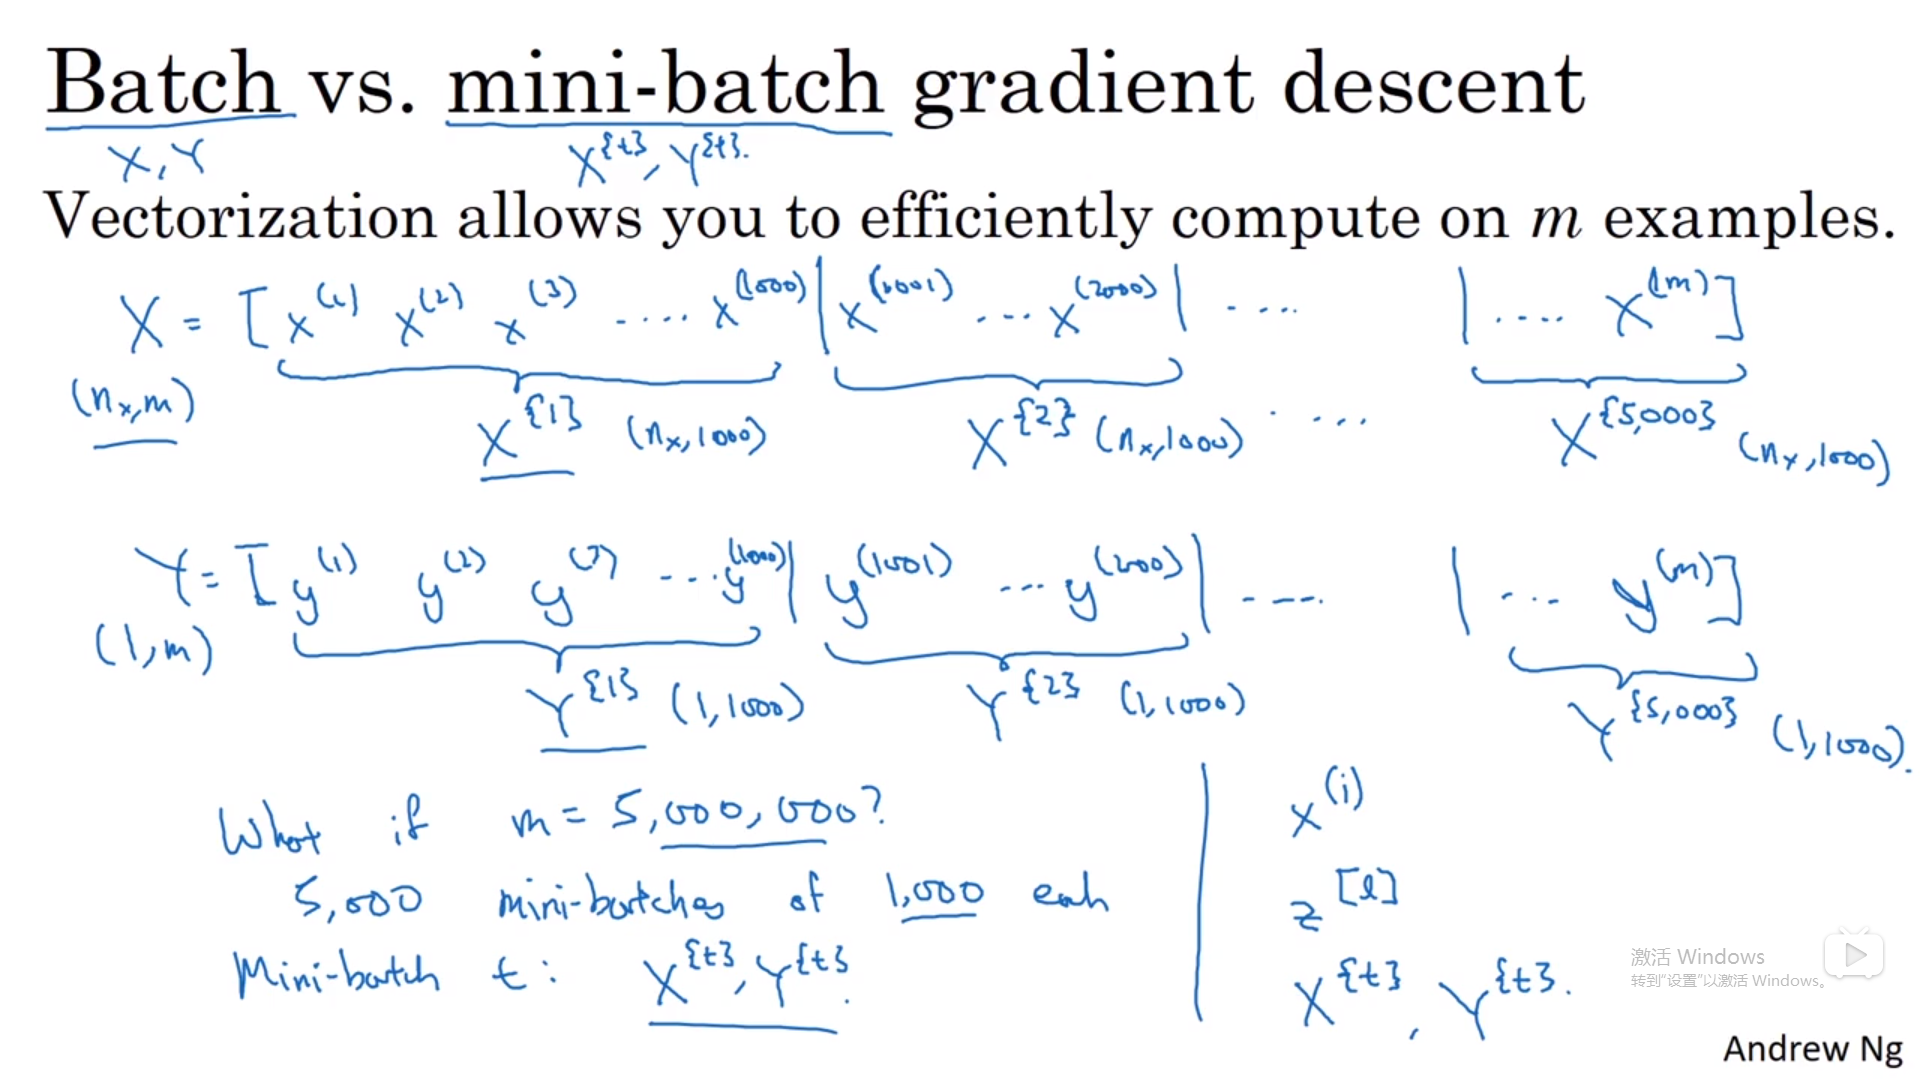 Batch vs. mini-batch gradient descent
X, Y X^{t}, Y^{t}.
Vectorization allows you to efficiently compute on m examples.
X = [x^(1) x^(2) x^(3) .... x^(1000) | x^(1001) ... x^(2000) | .... | .... x^(m)]
(n_x, m) X^{1} (n_x, 1000) X^{2} (n_x, 1000) ..... X^{5,000} (n_x, 1000)
Y = [y^(1) y^(2) y^(3) ... y^(1000) | y^(1001) ... y^(2000) | .... | ... y^(m)]
(1, m) Y^{1} (1, 1000) Y^{2} (1, 1000) Y^{5,000} (1, 1000).
What if m = 5,000,000?
5,000 mini-batches of 1,000 each
Mini-batch t: X^{t}, Y^{t}.
x^(i)
z^[l]
X^{t}, Y^{t}.
激活 Windows
转到“设置”以激活 Windows。
Andrew Ng